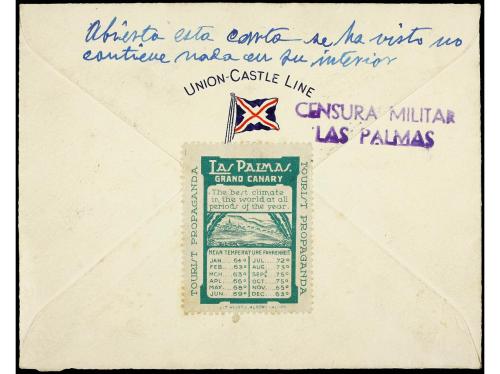 Abierta esta carta se ha visto no
contiene nada en su interior
UNION-CASTLE LINE
CENSURA MILITAR
LAS PALMAS
LAS PALMAS.
GRAND CANARY
The best climate
in the world at all
periods of the year.
TOURIST PROPAGANDA
TOURIST PROPAGANDA
MEAN TEMPERATURE FAHRENHEIT
JAN. 64° JUL. 72°
FEB. 63° AUG. 73°
MCH. 63° SEP. 75°
APL. 66° OCT. 75°
MAY. 68° NOV. 65°
JUN. 69° DEC. 63°